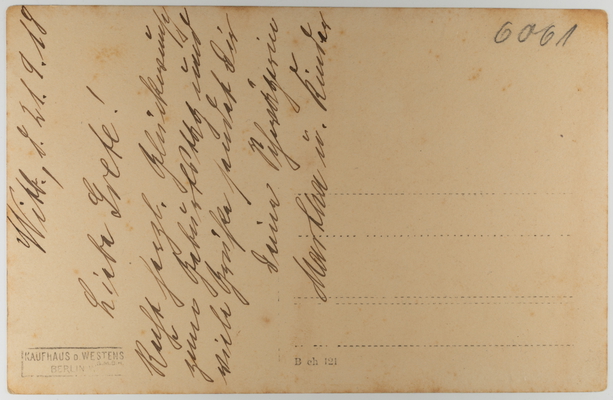 Witt., d. 21.9.18
Liebe Grete!
Recht herzl. Glückwünsche
zum Geburtstag und
viele Grüße sendet Dir
Deine Schwägerin
Martha u. Kinder
6061
KAUFHAUS D. WESTENS
G.M.B.H.
BERLIN
B eh 121